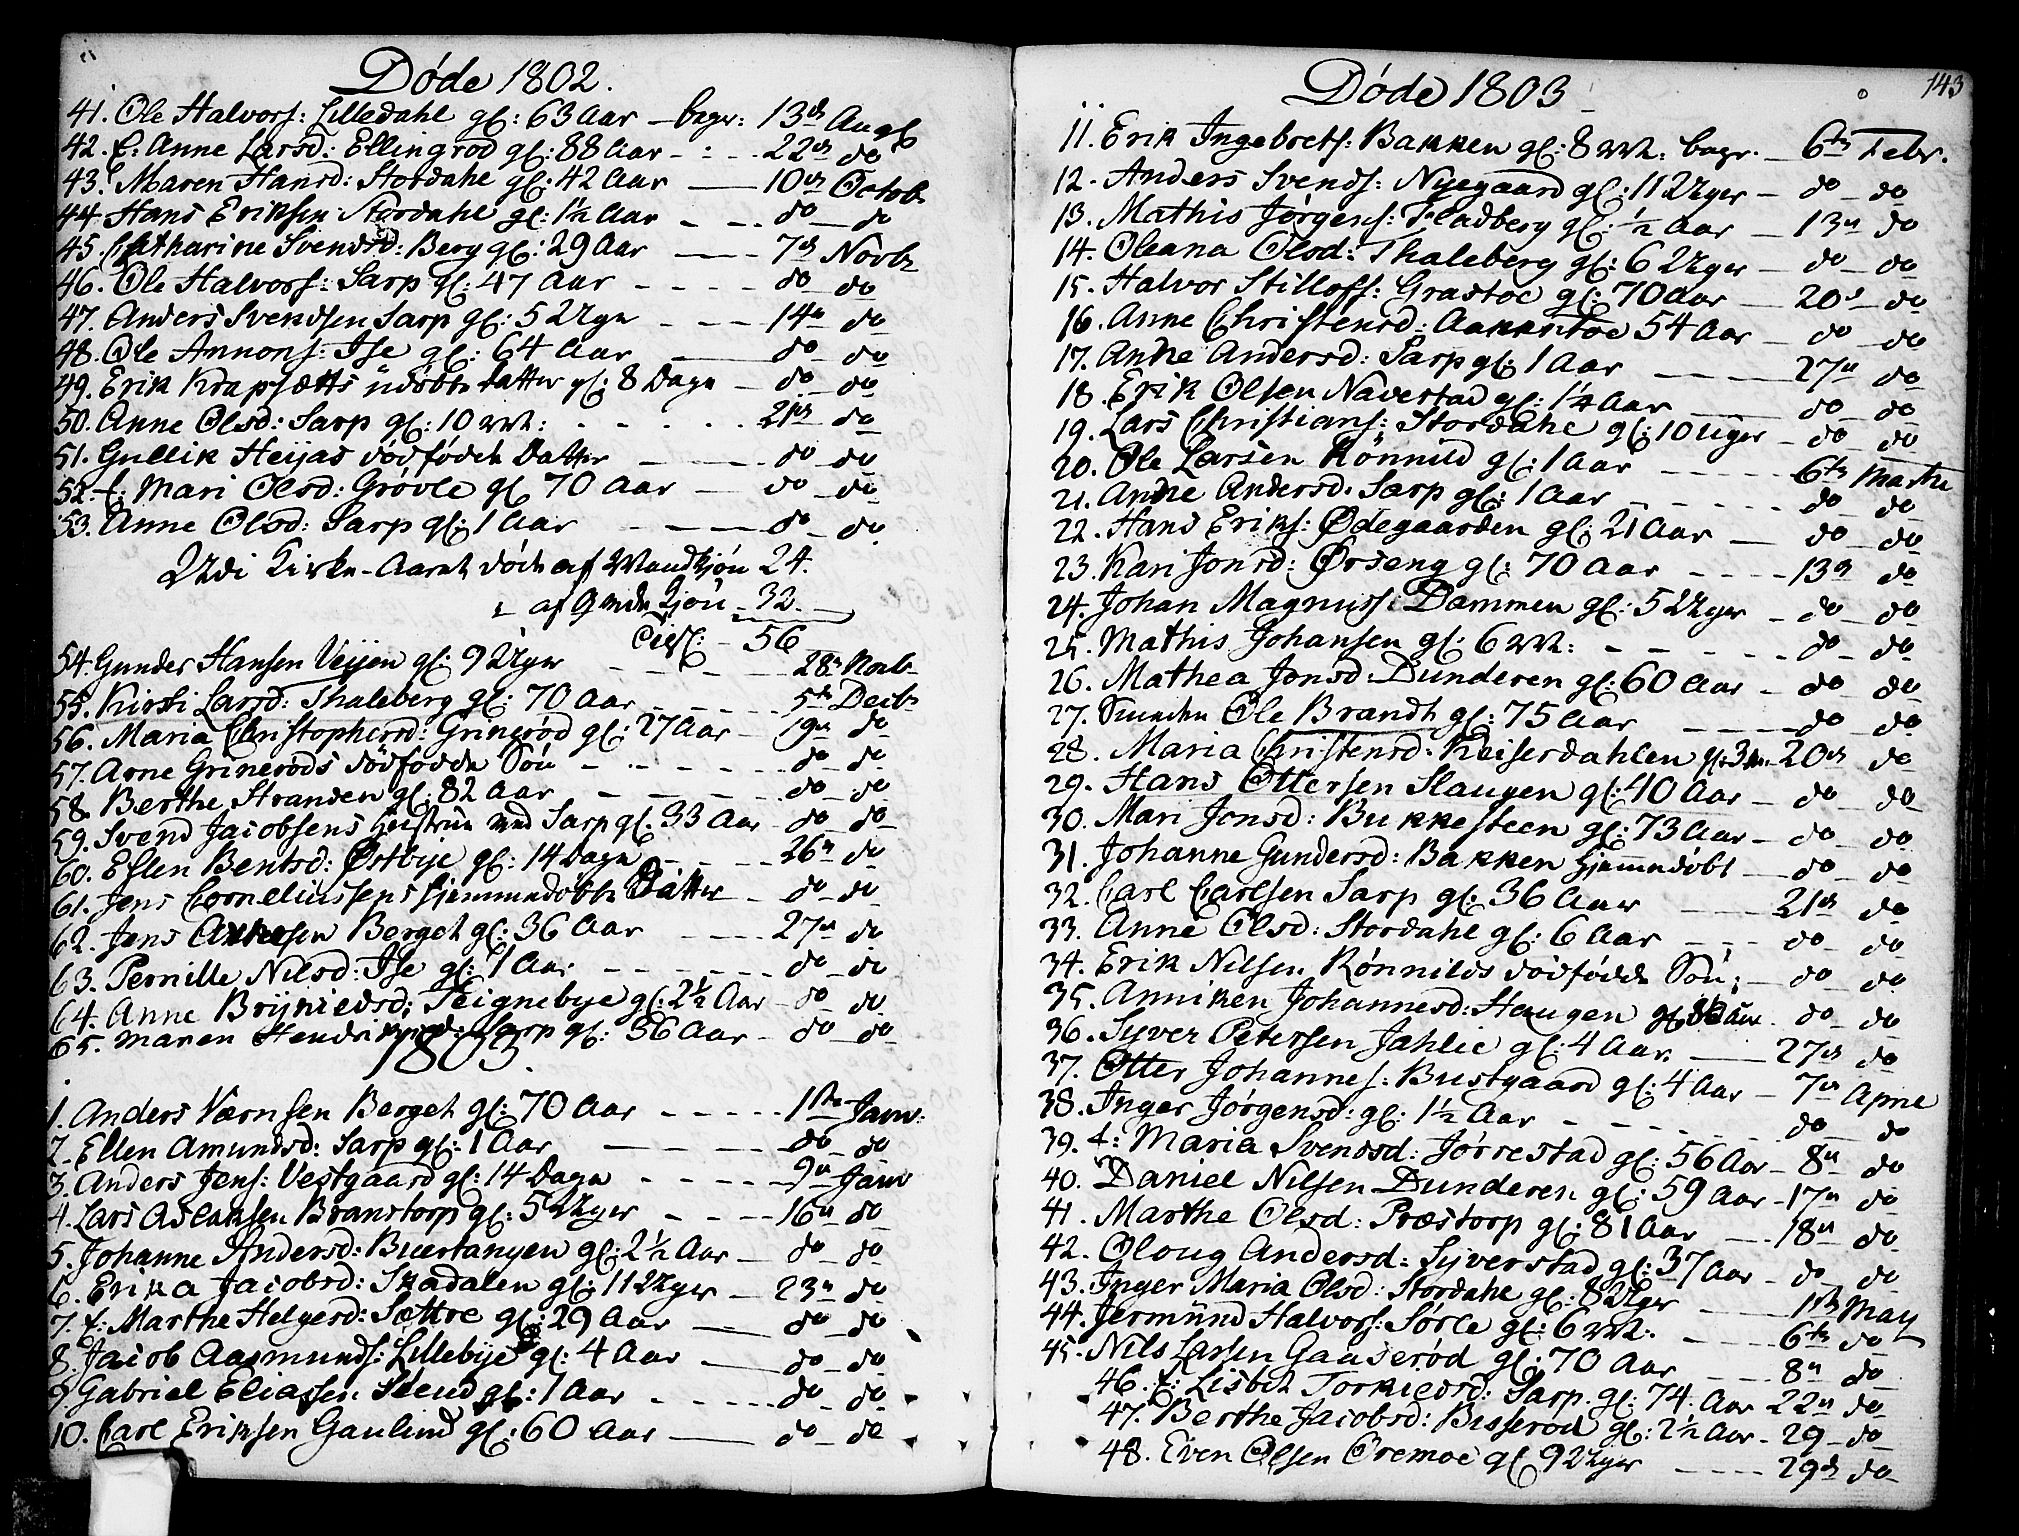 Døde 1802.
41. Ole Halvors: Lilledahl gl: 63 Aar – begr: 13de Augs
42. f: Anne Larsd: Ellingrød gl: 88 Aar - - - 22de do
43. Maren Hansd: Stordahl gl: 42 Aar — 10de Octob
44 Hans Eriksen Stordahl gl: 1½ Aar - - do — do
45. Catharine Svendsd: Berg gl: 29 Aar — 7de Novbr
46. Ole Halvors: Sarp gl: 47 Aar - - - - do – do
47. Anders Svendsen Sarp gl: 5 Uger - - - 14de do
48. Ole Annons: Ise gl: 64 Aar — do – do
49. Erik Krapsætts udøbte Datter gl: 8 Dage — do – do
50. Anne Olsd: Sarp gl: 10 - - - - - 21de do
51. Gullik Heijas dødfødde Datter — do – do
52 f: Mari Olsd: Grøvle gl 70 Aar — do – do
53. Anne Olsd: Sarp gl: 1 Aar - — do – do
I Kirke-Aaret døde af Mandkjøn 24.
" af Qvindekjøn - 32.
- 56
54. Gunder Hansen Veijen gl: 9 Uger - - - - 28de Novb
55. Kirsti Larsd: Thaleberg gl: 70 Aar - - - - 5te Decb
56. Maria Christophersd: Grinerød gl: 27 Aar – 19de do
57. Arne Grinerøds dødfødde Søn - - - - - do – do
58. Berthe Stranden gl: 82 Aar - - - - do – do
59. Svend Jacobsens Hustrue ved Sarp gl: 33 Aar – do – do
60. Eslen Bentsd: Østbije gl: 14 Dage - - - - 26de do
61. Jens Corneliussens hjemmedøbte Datter - do – do
62. Jens Berget gl: 36 Aar - - - - 27de do
63. Pernille Nilsd: Ise gl: 1 Aar - - - - - do – do
64. Anne Brijnieldsd: Teignebye gl: 2½ Aar – do – do
65. Maren Hendriksd: Sarp gl: 36 Aar - do – do
1803.
1. Anders Værnsen Berget gl: 70 Aar - - - - - 1ste Janv:
2. Ellen Amundsd: Sarp gl: 1 Aar — do – do
3. Anders Jens: Vestgaard gl: 14 Dage - - - - - 9de Janv
4. Lars Aslaksen Branstorp gl: 5 Uger - - - - 16de do
5. Johanne Andersd: Buertangen gl: 2½ Aar — do – do
6. Erika Jacobsd: Skadalen gl: 11 Uger — 23de do
7. f: Marthe Helgersd: Sættre gl: 29 Aar — do – do
8. Jacob Aasmunds: Lillebije gl: 4 Aar — do – do
9 Gabriel Eliassen Slend gl: 1 Aar - - - - - do – do
10. Carl Eriksen Gaulund gl: 60 Aar — do – do
Døde 1803
143
11. Erik Ingebrets: Bakken gl: 8 begr. — 6te Febr.
12. Anders Svends: Nyegaard gl: 11 Uger – do – do
13. Mathis Jørgens: Fladberg gl: ½ Aar — 13de do
14. Oleana Olsd: Thaleberg gl: 6 Uger – do – do
15. Halvor Stillofs: Grastoe gl: 70 Aar — 20de do
16. Anne Christensd: Aakkertoe 54 Aar — do – do
17. Anne Andersd: Sarp gl: 1 Aar — 27de do
18. Erik Olsen Navestad gl: 1¼ Aar — do – do
19. Lars Christians: Stordahl gl: 10 Uger – do – do
20. Ole Larsen Rønnild gl: 1 Aar - - - - - 6te Martii
21. Anne Andersd: Sarp gl: 1 Aar - - - - - do – do
22. Hans Eriks: Ødegaarden gl: 21 Aar — do – do
23. Kari Jonsd: Ørseng gl: 70 Aar - - - - 13de do
24. Johan Magnus: Dammen gl: 5 Uger – do – do
25. Mathis Johansen gl: 6 - - - - - do – do
26. Mathea Jonsd: Dunderen gl: 60 Aar – do – do
27. Smeden Ole Brandt gl: 75 Aar - - - - do – do
28. Maria Christensd: Keiserdahlen gl: 3 20de do
29. Hans Ottersen Slaugen gl: 40 Aar – do – do
30. Mari Jonsd: Bukkesteen gl: 73 Aar – do – do
31. Johanne Gundersd: Bakken hjemmedøbt — do – do
32. Carl Carlsen Sarp gl: 36 Aar - - - - 21de do
33. Anne Olsd: Stordahl gl: 6 Aar - - - do – do
34. Erik Nilsen Rønnilds dødfødde Søn, — do – do
35. Anniken Johannesd: Haugen gl: do – do
36. Syver Petersen Jahlie gl: 4 Aar. — 27de do
37. Otter Johannes: Bustgaard gl: 4 Aar – 7de April
38. Inger Jørgensd: gl: 1½ Aar - - - - - - do — do
39. f: Maria Svendsd: Jørrestad gl: 56 Aar – 8de do
40. Daniel Nilsen Dunderen gl: 59 Aar – 17de do
41. Marthe Olsd: Præstorp gl: 81 Aar — 18de do
42. Oloug Andersd: Syverstad gl: 37 Aar – do – do
43. Inger Maria Olsd: Stordahl gl: 8 Uger — 1ste May
44. Jermund Halvors: Sørle gl: 6 - - - - 6te do
45. Nils Larsen Gauserød gl: 70 Aar - - - - 8de do
46. f: Lisbet Torkieldsd: Sarp. gl: 74. Aar 22de do
47. Berthe Jacobsd: Bisserød gl: 2½ Aar – 29 – do
48. Even Olsen Oremoe gl 9 Uger - - - - 29de do